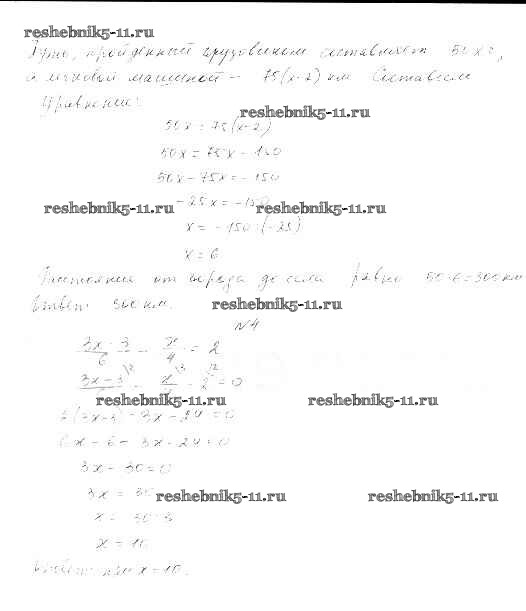 reshebnik5-11.ru
Путь, пройденный грузовиком составляет 50x,
а легковой машиной – 75(x-2) км Составим
уравнение:
reshebnik5-11.ru
50x = 75(x-2)
50x = 75x - 150
50x - 75x = -150
-25x = -150
reshebnik5-11.ru reshebnik5-11.ru
x = -150:(-25)
x = 6
Расстояние от города до села равно 50·6=300 км
Ответ: 300 км.
reshebnik5-11.ru
№4
(3x-3)/6 - x/4 = 2
(3x-3)/ - x/ - 2 = 0
reshebnik5-11.ru reshebnik5-11.ru
- 3x - 24 = 0
6x - 6 - 3x - 24 = 0
3x - 30 = 0
3x = 30
reshebnik5-11.ru reshebnik5-11.ru
x = 30:3
x = 10
Ответ: при x = 10.